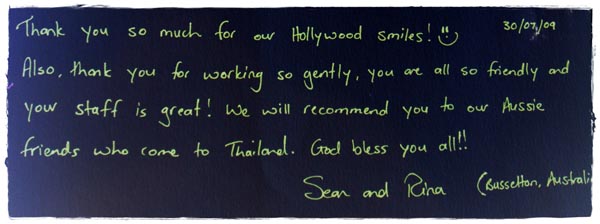 Thank you so much for our Hollywood smiles! 30/07/09
Also, thank you for working so gently, you are all so friendly and
your staff is great! We will recommend you to our Aussie
friends who come to Thailand. God bless you all!!
Sean and Rina (Busselton, Australia